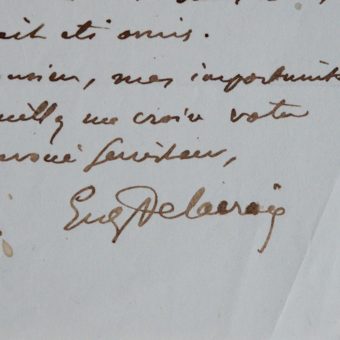 ait eté omis.
nsieur, mes importunités
veuillez me croire votre
dévoué serviteur,
Eug Delacroix